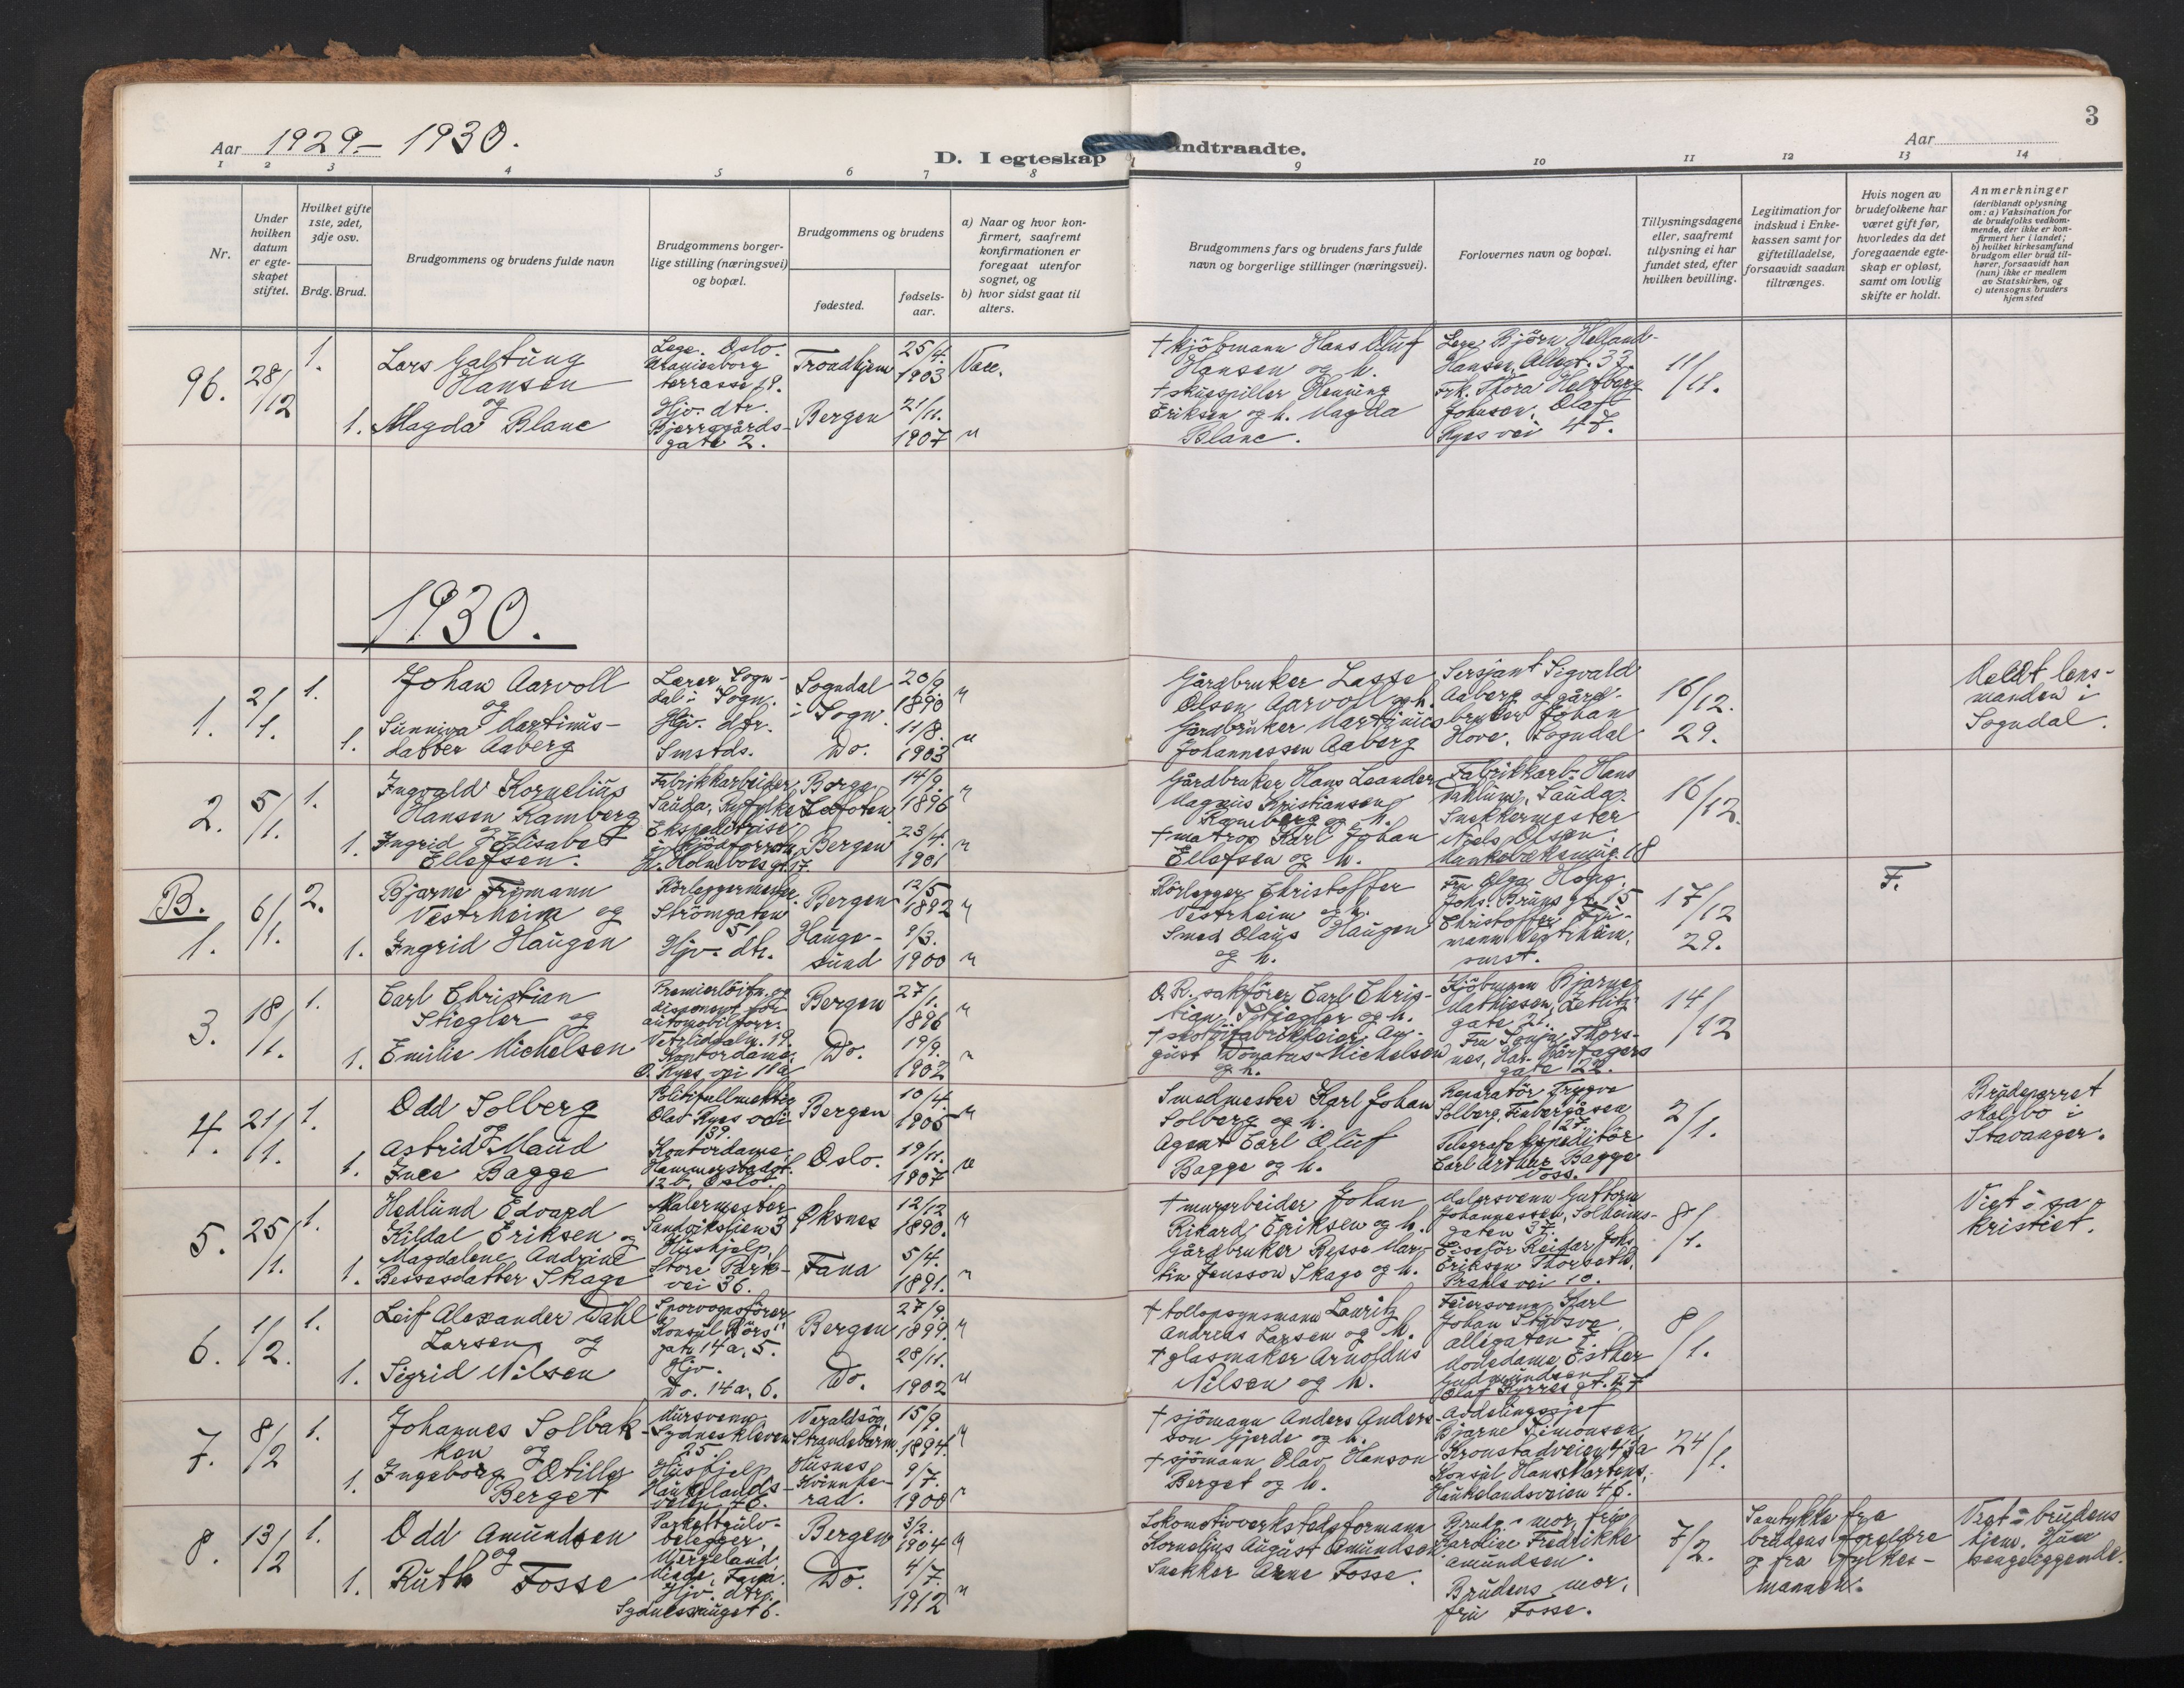 3
Aar 1929.- 1930.
D. I egteskap indtraadte.
Aar
1 2 3 4 5 6 7 8 9 10 11 12 13 14
Nr.
Under hvilken datum er egteskapet stiftet.
Hvilket gifte 1ste, 2det, 3dje osv.
Brdg. Brud.
Brudgommens og brudens fulde navn
Brudgommens borgerlige stilling (næringsvei) og bopæl.
Brudgommens og brudens
fødested.
fødselsaar.
a) Naar og hvor konfirmert, saafremt konfirmationen er foregaat utenfor sognet, og
b) hvor sidst gaat til alters.
Brudgommens fars og brudens fars fulde navn og borgerlige stillinger (næringsvei).
Forlovernes navn og bopæl.
Tillysningsdagene eller, saafremt tillysning ei har fundet sted, efter hvilken bevilling.
Legitimation for indskud i Enkekassen samt for giftetilladelse, forsaavidt saadan tiltrænges.
Hvis nogen av brudefolkene har været gift før, hvorledes da det foregaaende egteskap er opløst, samt om lovlig skifte er holdt.
Anmerkninger
(deriblandt oplysning om: a) Vaksination for de brudefolks vedkommende, der ikke er konfirmert her i landet;
b) hvilket kirkesamfund brudgom eller brud tilhører, forsaavidt han (hun) ikke er medlem av Statskirken, og
c) utensogns bruders hjemsted
96. 28/12 1. Lars Galtung Hansen og
Lege. Oslo. Uranienborg terrasse 19.
Trondhjem 25/4. 1903 Vacc.
1. Magda Blanc
Hjv. dtr. Bjerregårdsgate 2.
Bergen 21/11. 1907 "
† kjöbmann Hans Oluf Hansen og h.
† skuespiller Henning Eriksen og h. Magda Blanc.
Lege Björn Helland-Hansen, Allegt. 33.
Frk. Thora Holtberg Johnsen, Olaf Ryes vei 47.
11/12.
1930.
1. 2/1. 1. Johan Aarvoll og
Lærer Sogndal i Sogn.
Sogndal i Sogn. 20/9 1890 "
1. Sunniva Martinusdatter Aaberg
Hjv. dtr. Smstds.
Do. 11/8. 1903 "
Gårdbruker Lasse Olsen Aarvoll og h.
Gardbruker Martinus Johannessen Aaberg
Sersjant Sigvald Aaberg og gårdbruker Johan Hove. Sogndal
16/12. 29.
Meldt lensmanden i Sogndal.
2. 5/1. 1. Ingvald Kornelius Hansen Ramberg og
Fabrikkarbeider Sauda, Ryfylke
Borge Lofoten 14/9. 1896 "
1. Ingrid Elisabet Ellefsen.
Ekspeditrise i kjødforretn. H. Holmboes gt. 17.
Bergen 23/4. 1901 "
Gårdbruker Hans Leander Magnus Kristiansen Ramberg og h.
† matros Karl Johan Ellefsen og h.
Fabrikkarb. Hans Dahlum, Sauda.
Snekkermester Niels Olsen. 18
16/12.
B. 1. 6/1. 2. Bjarne Frymann Vestrheim og
Rörleggermester. Strömgaten 51
Bergen 12/5 1892 "
1. Ingrid Haugen
Hjv. dtr.
Haugesund 9/3. 1900 "
Rörlegger Christoffer Vestrheim og h.
Smed Olaus Haugen og h.
Fru Olga Haug. Johs. Bruns gt. 15
Christoffer Vestrheim, smst.
17/12 29.
F.
3. 18/1. 1. Carl Christian Stiegler og
Premierlöitn. og disponent for automobilforr. Vetrlidsalm. 19.
Bergen 27/1. 1896 "
1. Emilie Michelsen
Kontordame, O. Ryes vei 11a
Do. 19/9. 1902 "
O. R. sakförer Carl Christian Stiegler og h.
† skotöifabrikkeier August Donatus Michelsen og h.
Kjöbmann Bjarne Mathiesen, Zetlitzgate 2.
Fru Thorsnes, Har. Hårfagers gate 22.
14/12
4. 21/1. 1. Odd Solberg
Politifullmektig Olav Ryes vei 139.
Bergen 10/4. 1905 "
1. Astrid Maud Inee Bagge
Kontordame, Hammerstadgt. 12b, Oslo.
Oslo. 19/11. 1907 "
Smedmester Karl Johan Solberg og h.
Agent Carl Oluf Bagge og h.
Reparatör Trygve Solberg, 127
Telegrafekspeditör Carl Arthur Bagge Voss.
2/1.
Brudeparret skal bo i Stavanger.
5. 25/1. 1. Hedlund Edvard Kildal Eriksen og
Malermester Sandvikslien 3
Øksnes 12/12 1890. "
1. Magdalene Andrine Bessesdatter Skage
Hushjelp, Store Parkvei 36.
Fana 5/4. 1891. "
† murarbeider Johan Rikard Eriksen og h.
Gårdbruker Besse Martin Jensson Skage og h.
Malersvenn Guttorm Johannessen, Solheimsgaten 37.
Reidar Johs. Eriksen Thorseth, Prahls vei 10.
8/1.
Viet i sakristiet.
6. 1/2. 1. Leif Alexander Dahl Larsen og
Sporvognsförer Konsul Börs gate 14a, 5.
Bergen 27/9. 1899. "
1. Sigrid Nilsen
Hjv. Do. 14a, 6.
Do. 28/11. 1902 "
† tollopsynsmann Lauritz Andreas Larsen og h.
† glasmaker Arnoldus Nilsen og h.
Feiersvenn Karl Johan Allegaten 7.
Modedame Esther Gudmundsen Olaf Kyrres gt. 47
8/1.
7. 8/2 1. Johannes Solbakken og
Mursvenn, Sydneskleven 25
Varaldsöy, Strandebarm. 15/9. 1894. "
1. Ingeborg Otilie Berget
Hushjelp, Haukelandsveien 46.
Husnes, Kvinnherad. 9/7. 1900 "
† sjömann Anders Anderson Gjerde og h.
† sjömann Olav Hanson Berget og h.
Avdelingssjef Bjarne Simonsen, Kronstadveien 43a
Konsul Hans Martens, Haukelandsveien 46.
24/1.
8. 13/2 1. Odd Amundsen og
Parkettgulvbelegger, Wergeland, Fana.
Bergen 3/2. 1904 "
1. Ruth Fosse
Hjv. dtr. Sydnessmuget 6.
Do. 4/7. 1912 "
Lokomotivverkstedsformann Kornelius August Amundsen.
Snekker Arne Fosse.
Brudg.s mor, frue Karoline Fredrikke Amundsen.
Brudens mor, fru Fosse.
7/2.
Samtykke fra brudens foreldre og fra fylkesmannen.
Viet i brudens hjem. Hun sengeliggende.